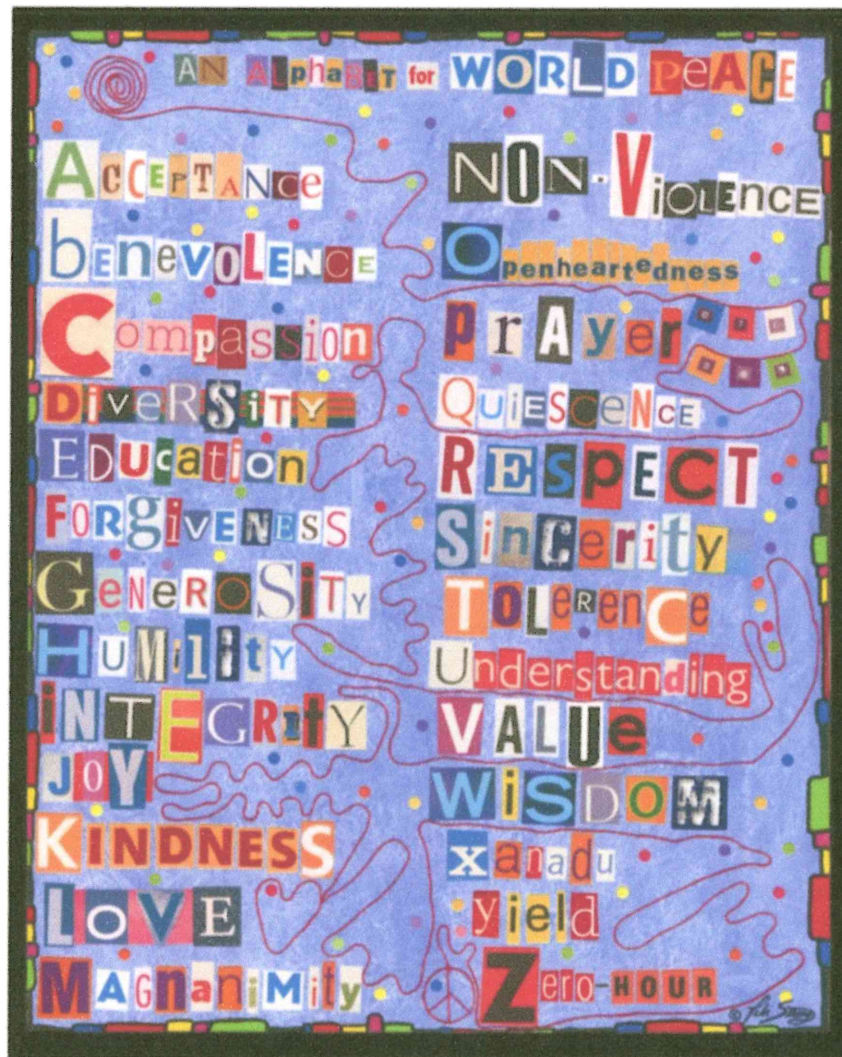 AN ALphaBET for WORLD PeACE
AcCEPTANce
bENeVOLENCE
Compassion
DiVeRSiTY
EDUcation
FORgiVENESS
GeNeROSiTY
HUMilITy
iNTEGRitY
JOY
KINDNESS
LoVE
MAGnaniMity
NON-VioLENCE
Openheartedness
prAyer
QUIESCeNCE
RESpECT
SinCerity
TOLERENCe
Understanding
VALUe
WiSDOM
xanadu
yield
Zero-HOUR
©